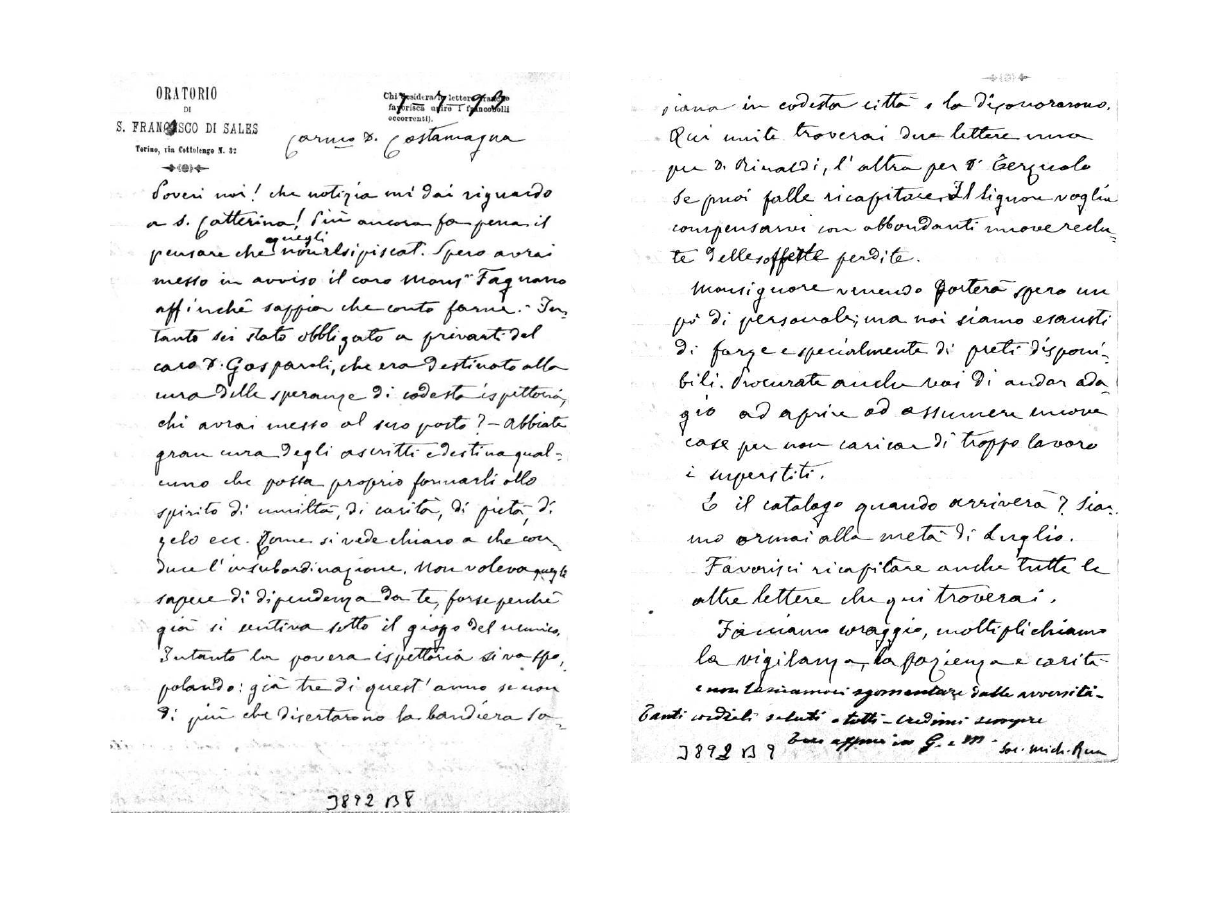 ORATORIO
DI
S. FRANCESCO DI SALES
Torino, via Cottolengo N. 32
Chi desidera la lettera franca
favorisca unire i francobolli
occorrenti).
7-7-93
Carmo D. Costamagna
Poveri noi! che notizia mi dai riguardo
a S. Catterina! Più ancora fa pena il
pensare che quegli non resipiscat. Spero avrai
messo in avviso il caro Monsr Fagnano
affinchè sappia che conto farne. In-
tanto sei stato obbligato a privarti del
caro D. Gasparoli, che era destinato alla
cura delle speranze di codesta ispettoria,
chi avrai messo al suo posto? - Abbiate
gran cura degli ascritti e destina qual-
cuno che possa proprio formarli allo
spirito di umiltà, di carità, di pietà, di
zelo ecc. Come si vede chiaro a che con-
duce l'insubordinazione. Non voleva quegli
sapere di dipendenza da te, forse perchè
già si sentiva sotto il giogo del nemico.
Intanto la povera ispettoria si va spo-
polando: già tre di quest'anno se non
di più che disertarono la bandiera Sa-
J892 B8
siana in codesta città e la disonorarono.
Qui unite troverai due lettere una
per D. Rinaldi, l'altra per D.
Se puoi falle ricapitare. Il Signore voglia
compensarvi con abbondanti nuove reclu-
te delle sofferte perdite.
Monsignore venendo porterà spero un
pò di personale; ma noi siamo esausti
di forze e specialmente di preti disponi-
bili. Procurate anche voi di andar ada
gio ad aprire ad assumere nuove
case per non caricar di troppo lavoro
i superstiti.
E il catalogo quando arriverà? Sia-
mo ormai alla metà di Luglio.
Favorisci ricapitare anche tutte le
altre lettere che qui troverai.
Facciamo coraggio, moltiplichiamo
la vigilanza, la pazienza e carità
e non lasciamoci sgomentare dalle avversità -
Tanti cordiali saluti a tutti - Credimi sempre
Tuo affmo in G. e M.
Sac. Mich. Rua
J892 B9